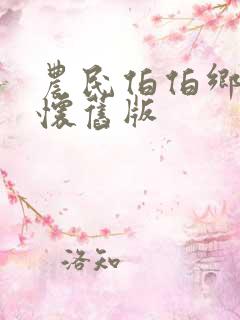 農民伯伯鄉
懷舊版
洛知